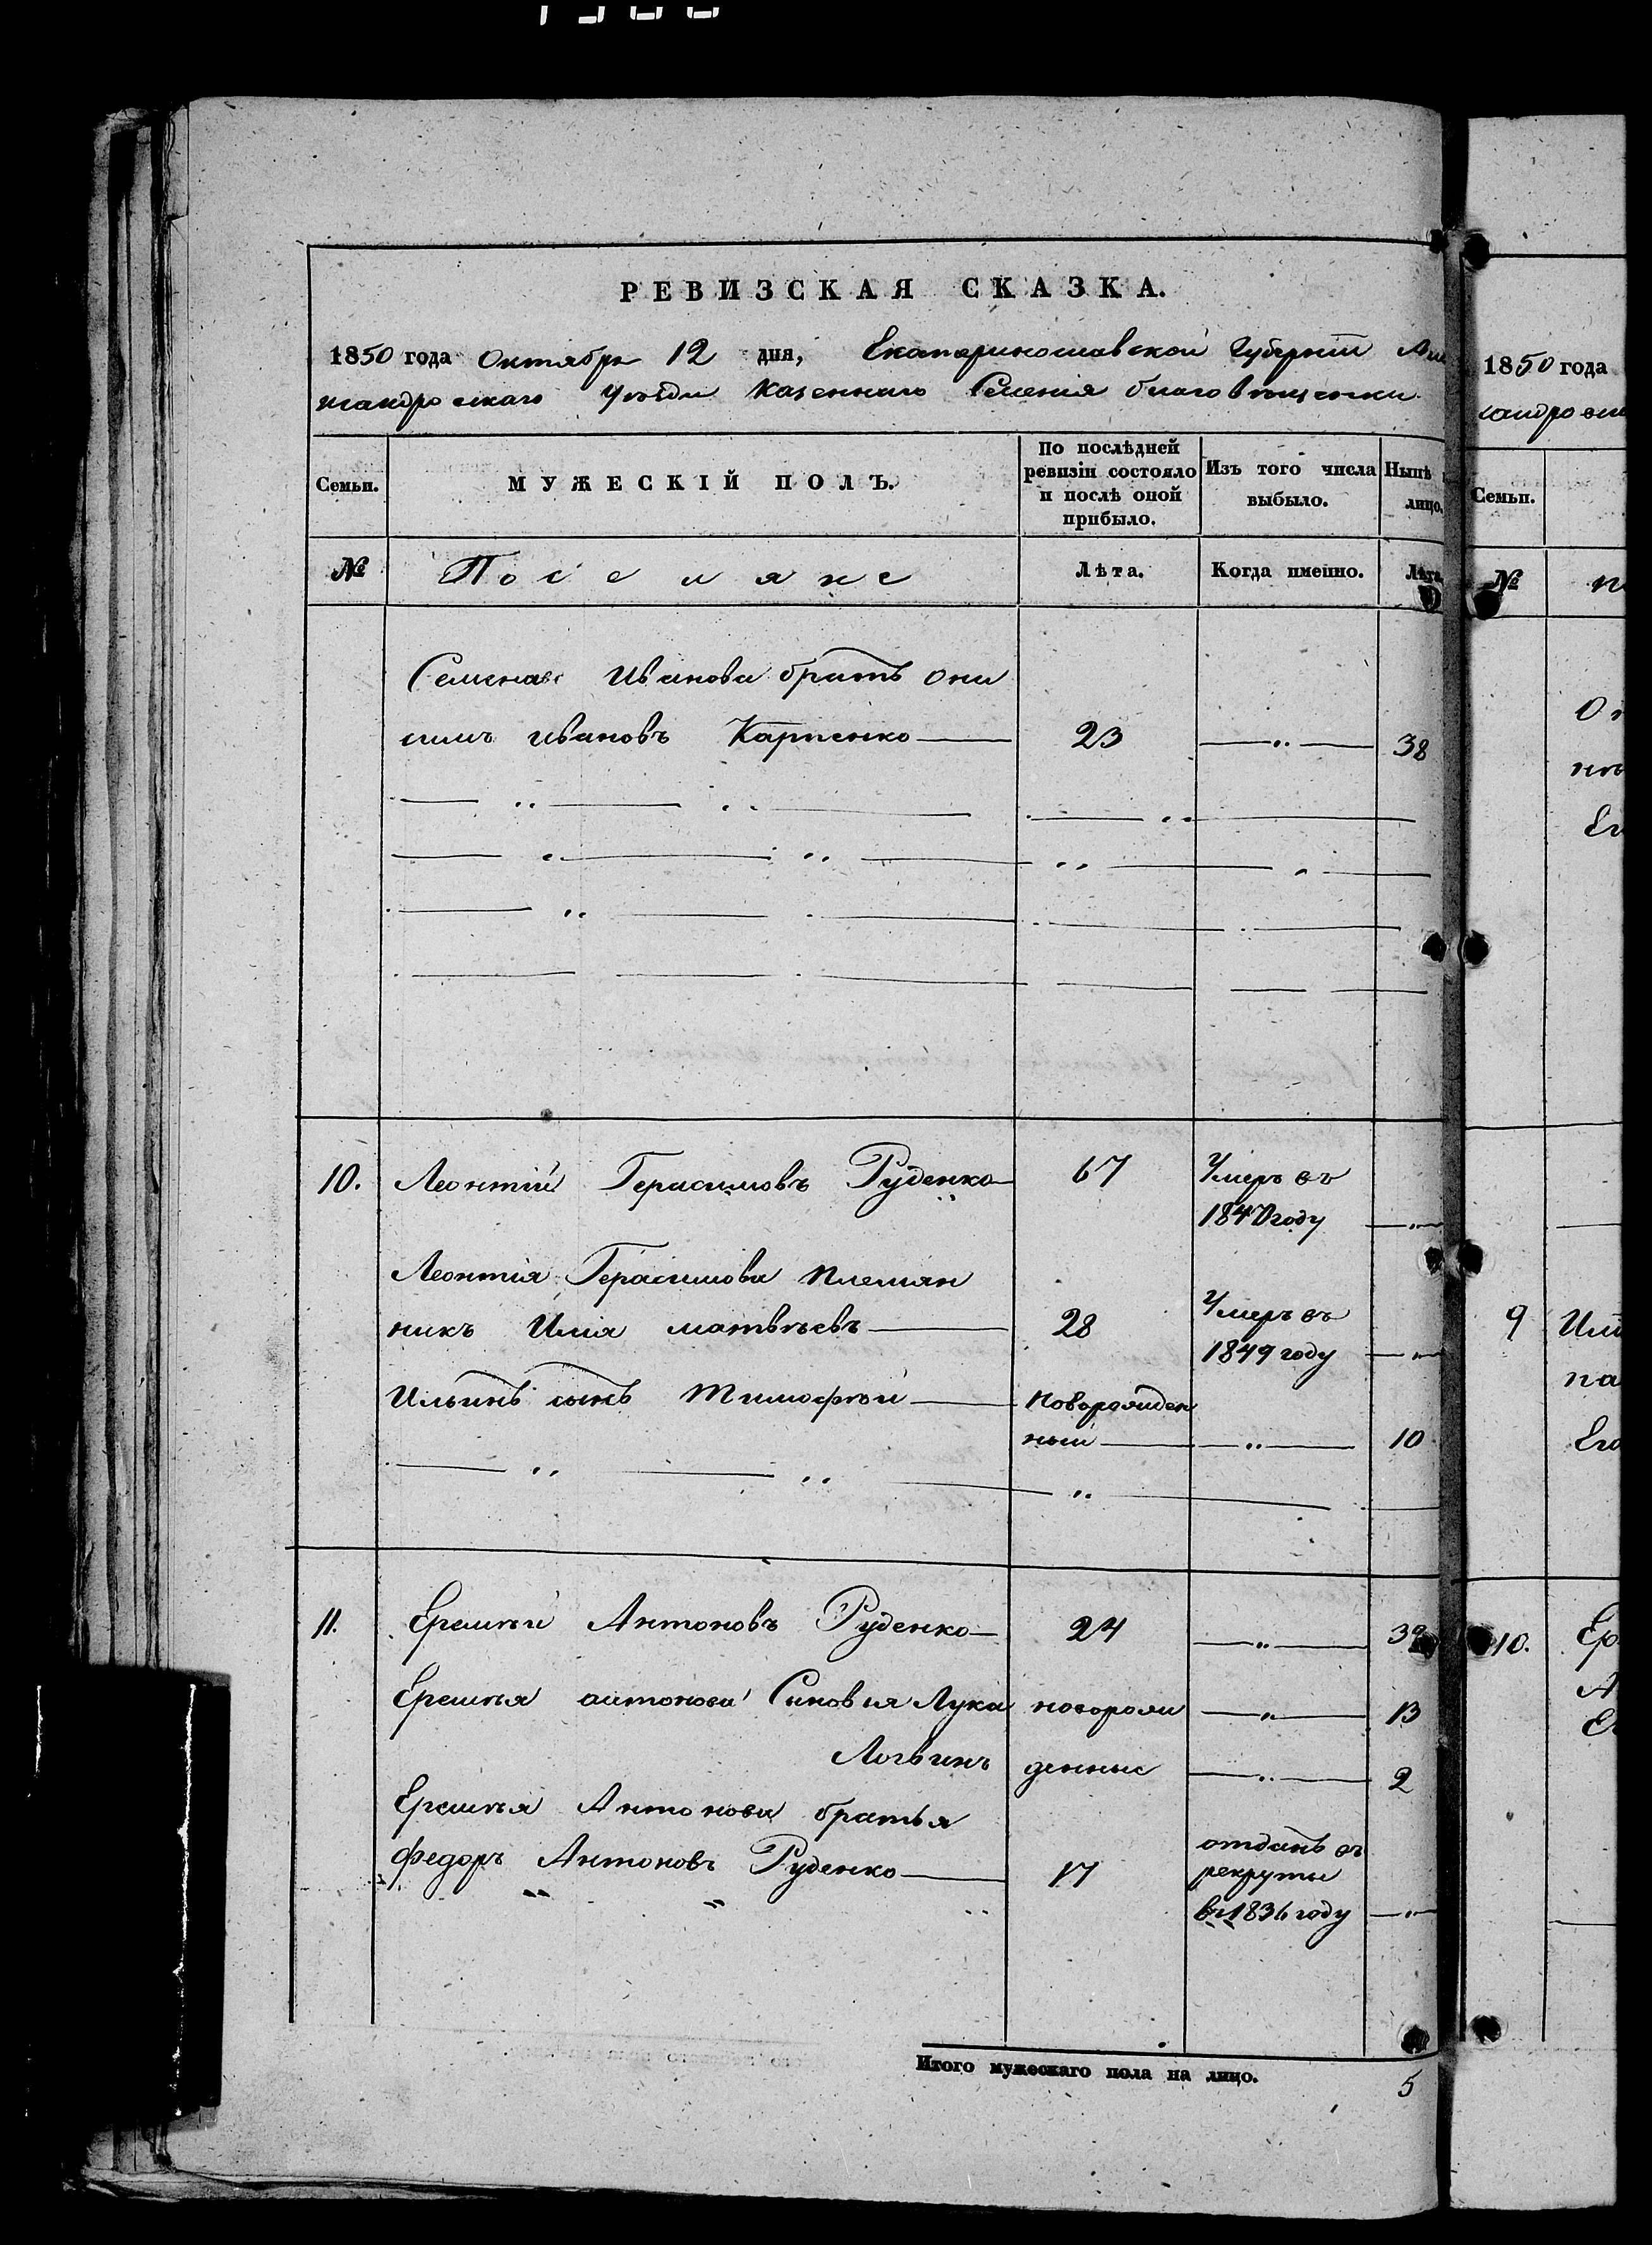 РЕВИЗСКАЯ СКАЗКА.
1850 года Октября 12 дня, Екатеринославской Губерніи Але
ксандровскаго Уѣзда Казеннаго Селенія благовѣщенки
Семьи. МУЖЕСКІЙ ПОЛЪ. По послѣдней ревизіи состояло и послѣ оной прибыло. Изъ того числа выбыло. Нынѣ лицо.
№ Поселяне Лѣта. Когда именно. Лѣта.
Семена Иванова братъ Они
симъ Ивановъ Карпенко 23 —„— 38
10. Леонтій Герасимовъ Руденко 67 Умеръ въ
1847 году —„—
Леонтія Герасимова племян
никъ Илія матвѣевъ 28 Умеръ въ
1849 году —„—
Ильинъ сынъ Тимофѣй новорожден
ный —„— 10
11. Еремѣй Антоновъ Руденко 24 —„— 39
Еремѣя антонова Сыновья Лука новорож —„— 13
Логвинъ денные —„— 2
Еремѣя Антонова братья
Федоръ Антоновъ Руденко 17 отданъ въ
рекруты
въ 1836 году —„—
Итого мужескаго пола на лицо. 5
1850 года
Семьи.
№
9
10.